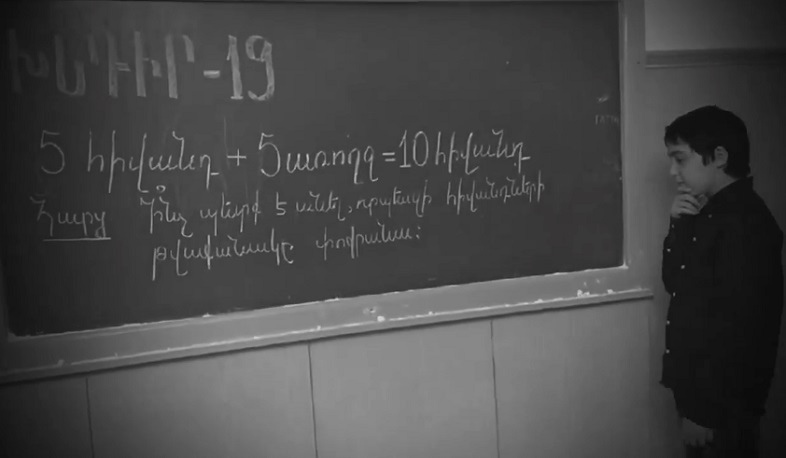 ԽՆԴԻՐ-19
5 հիվանդ + 5 առողջ = 10 հիվանդ
Հարց Ի՞նչ պետք է անել, որպեսզի հիվանդների
թվաքանակը փոքրանա: